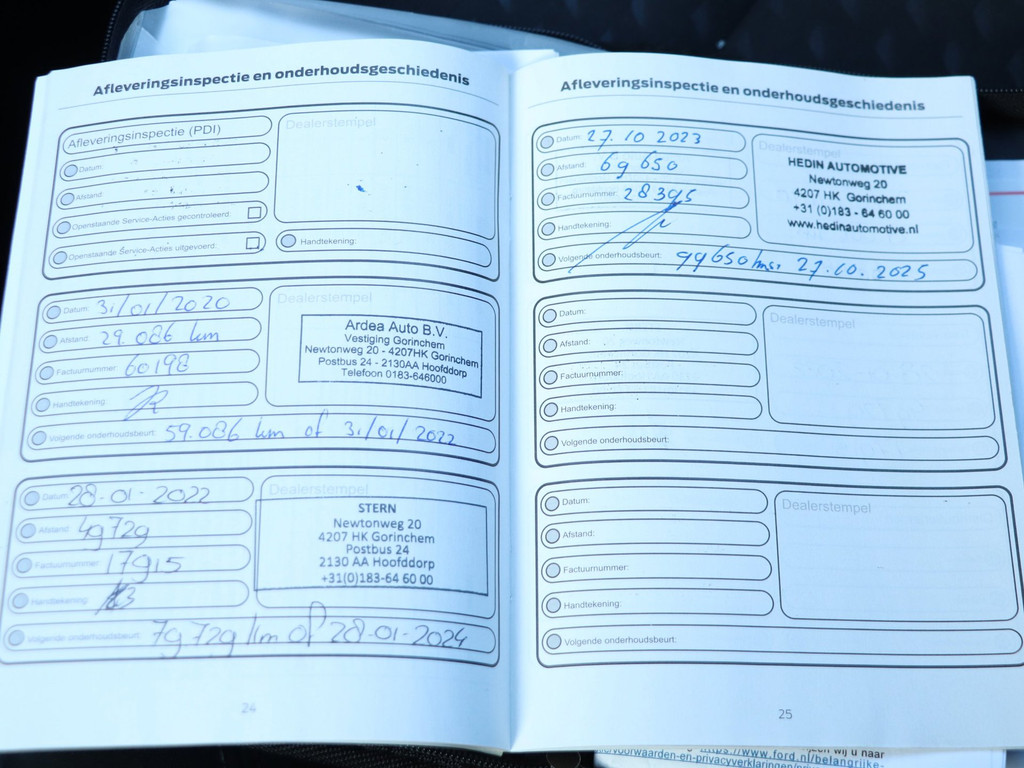 Afleveringsinspectie en onderhoudsgeschiedenis
Afleveringsinspectie (PDI)
Datum:
Afstand:
Openstaande Service-Acties gecontroleerd:
Openstaande Service-Acties uitgevoerd:
Dealerstempel
Handtekening:
Datum: 31/01/2020
Afstand: 29.086 km
Factuurnummer: 60198
Handtekening:
Volgende onderhoudsbeurt: 59.086 km of 31/01/2022
Dealerstempel
Ardea Auto B.V.
Vestiging Gorinchem
Newtonweg 20 - 4207HK Gorinchem
Postbus 24 - 2130AA Hoofddorp
Telefoon 0183-646000
Datum: 28-01-2022
Afstand: 49729
Factuurnummer: 17915
Handtekening:
Volgende onderhoudsbeurt: 79729 km of 28-01-2024
Dealerstempel
STERN
Newtonweg 20
4207 HK Gorinchem
Postbus 24
2130 AA Hoofddorp
+31(0)183-64 60 00
24
Afleveringsinspectie en onderhoudsgeschiedenis
Datum: 27.10 2023
Afstand: 69 650
Factuurnummer: 28395
Handtekening:
Volgende onderhoudsbeurt: 99650 27.10.2025
Dealerstempel
HEDIN AUTOMOTIVE
Newtonweg 20
4207 HK Gorinchem
+31 (0)183 - 64 60 00
www.hedinautomotive.nl
Datum:
Afstand:
Factuurnummer:
Handtekening:
Volgende onderhoudsbeurt:
Dealerstempel
Datum:
Afstand:
Factuurnummer:
Handtekening:
Volgende onderhoudsbeurt:
Dealerstempel
25
wij u naar
https://www.ford.nl/belangrijke-